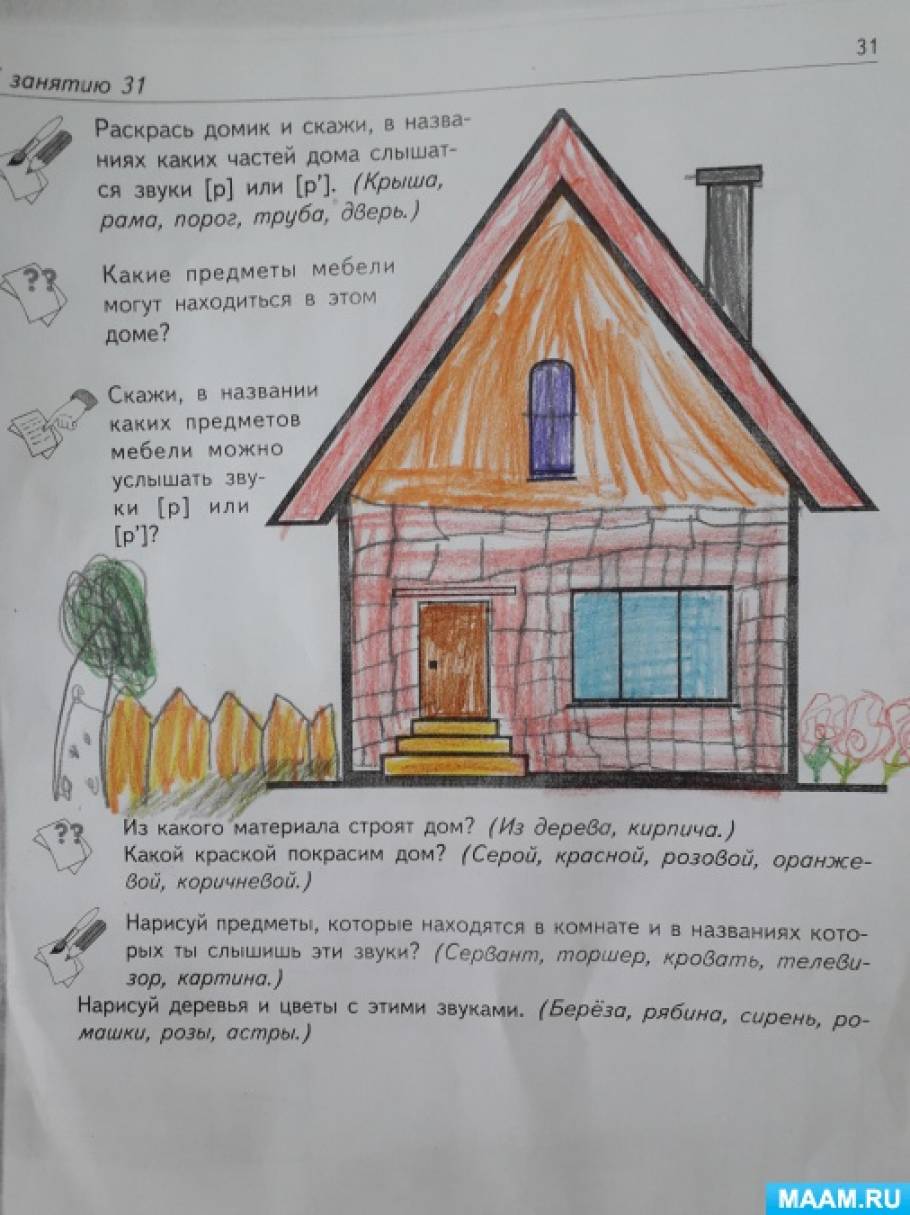 31
занятию 31
Раскрась домик и скажи, в назва-
ниях каких частей дома слышат-
ся звуки [р] или [р’]. (Крыша,
рама, порог, труба, дверь.)
??
Какие предметы мебели
могут находиться в этом
доме?
Скажи, в названии
каких предметов
мебели можно
услышать зву-
ки [р] или
[р’]?
??
Из какого материала строят дом? (Из дерева, кирпича.)
Какой краской покрасим дом? (Серой, красной, розовой, оранже-
вой, коричневой.)
Нарисуй предметы, которые находятся в комнате и в названиях кото-
рых ты слышишь эти звуки? (Сервант, торшер, кровать, телеви-
зор, картина.)
Нарисуй деревья и цветы с этими звуками. (Берёза, рябина, сирень, ро-
машки, розы, астры.)
MAAM.RU